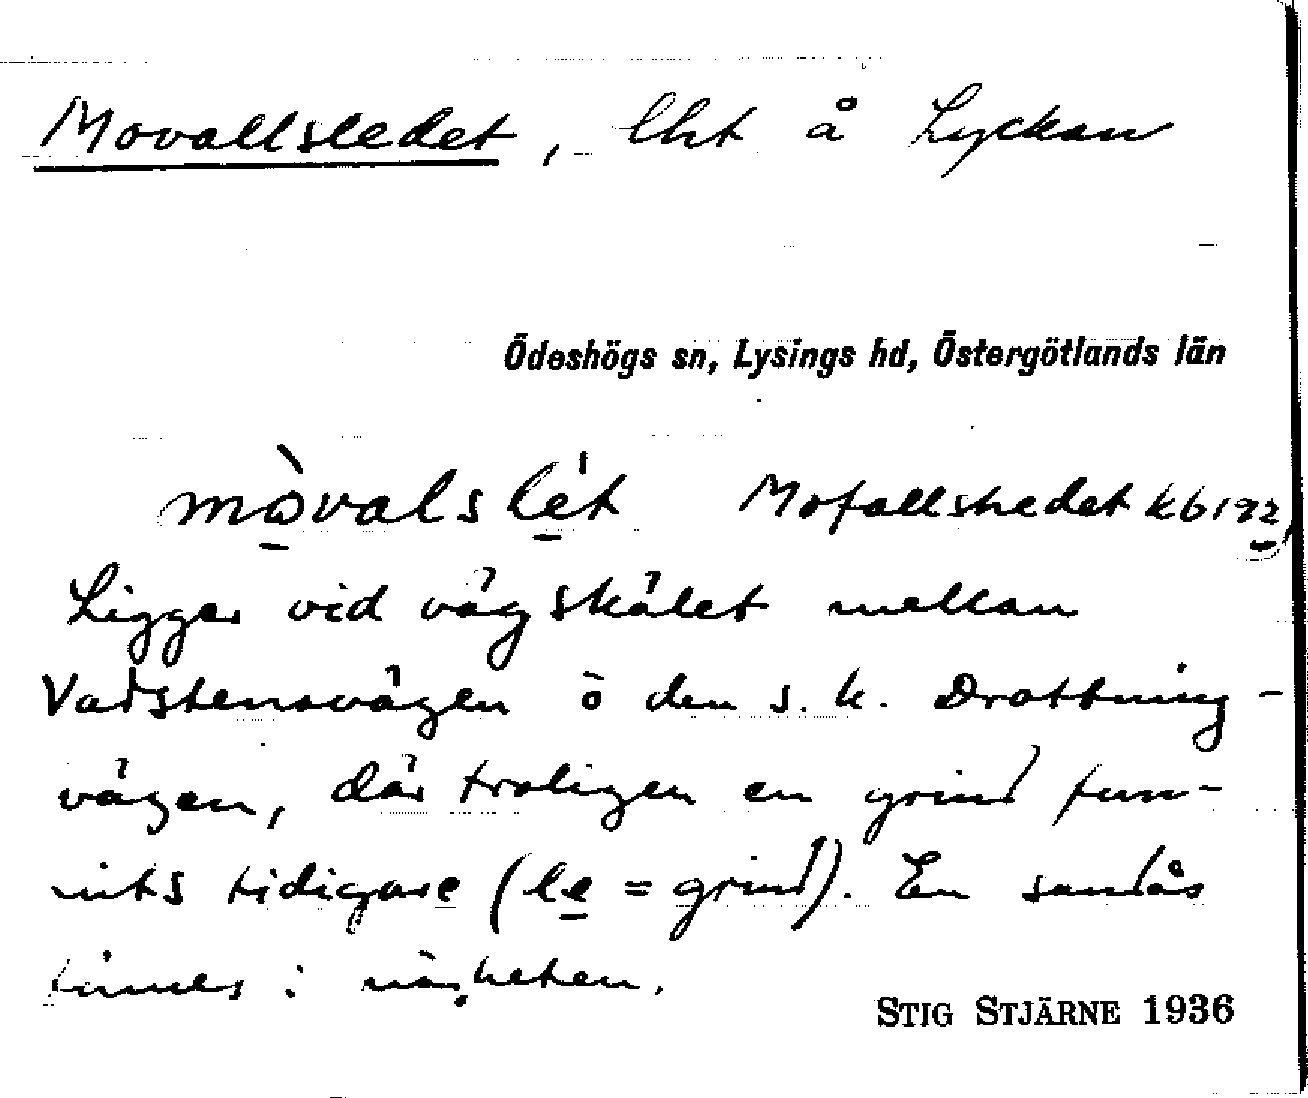 Movallsledet, lht å Lyckan
Ödeshögs sn, Lysings hd, Östergötlands län
mòvalslét Mofallshedet kb 192
Ligger vid vägskälet mellan
Vadstenavägen o den s.k. Drottning-
vägen, där troligen en grind fun-
nits tidigare (le = grind). En sandås
finnes i närheten.
STIG STJÄRNE 1936